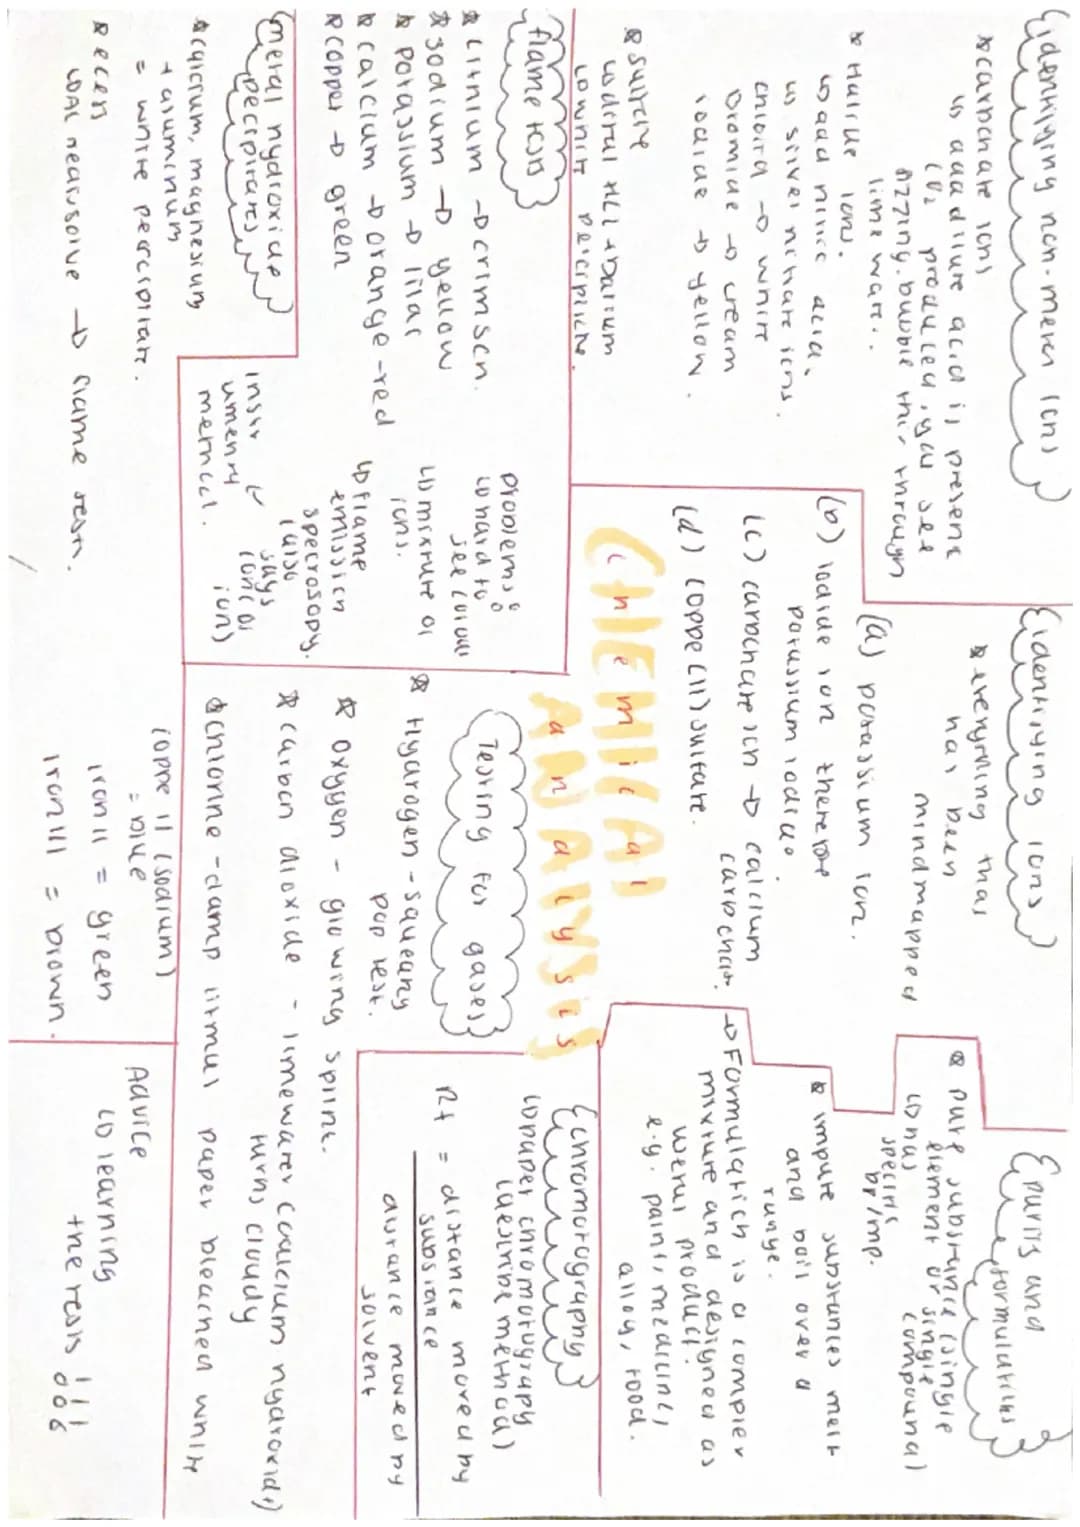 identifying non-metal ions
* carbonate ions
↳ add dilute acid is present
CO2 produced, you see
fizzing. bubble this through
lime water.
* Halide ions.
↳ add nitric acid,
↳ silver nitrate ions.
chloird → white
bromide → cream
iodide → yellow.
* sulfate
↳ dilute HCl + barium
↳ white percipitate.
flame tests
* Lithium → crimson.
* sodium → yellow
* potassium → lilac
* calcium → orange-red
* copper → green
problems:
↳ hard to
see colour
↳ mixture of
ions.
↳ flame
emission
specrosopy.
(also
says
conc of
ion)
instr
umental
method.
metal hydroxide
percipitates
* calcium, magnesium
+ aluminum
= white percipitate.
* excess
→ flame test.
copper II (sodium)
= blue
iron II = green
iron III = brown.
CHEMICAL
ANALYSIS
identifying ions
* everything that
has been
mindmapped
(a) potassium ion.
(b) iodide ion therefore
potassium iodide
(c) carbonate ion → calcium
carbonate.
(d) coppe(II) sulfate.
Testing for gases
* Hydrogen - squeaky
pop test.
* oxygen - glowing splint.
* carbon dioxide - limewater (calcium hydroxide)
turns cloudy
* chlorine - damp litmus paper bleached white
purity and
formulations
* pure substance (single
element or single
compound)
↳ has
specific
bp/mp.
* impure substances melt
and boil over a
range.
→ Formulation is a complex
mixture and designed as
useful product.
e.g. paint, medicine,
alloy, food.
chromotography
↳ paper chromotograpy
Rf = distance moved by
substance
distance moved by
solvent
Advice
↳ learning
the tests !!!